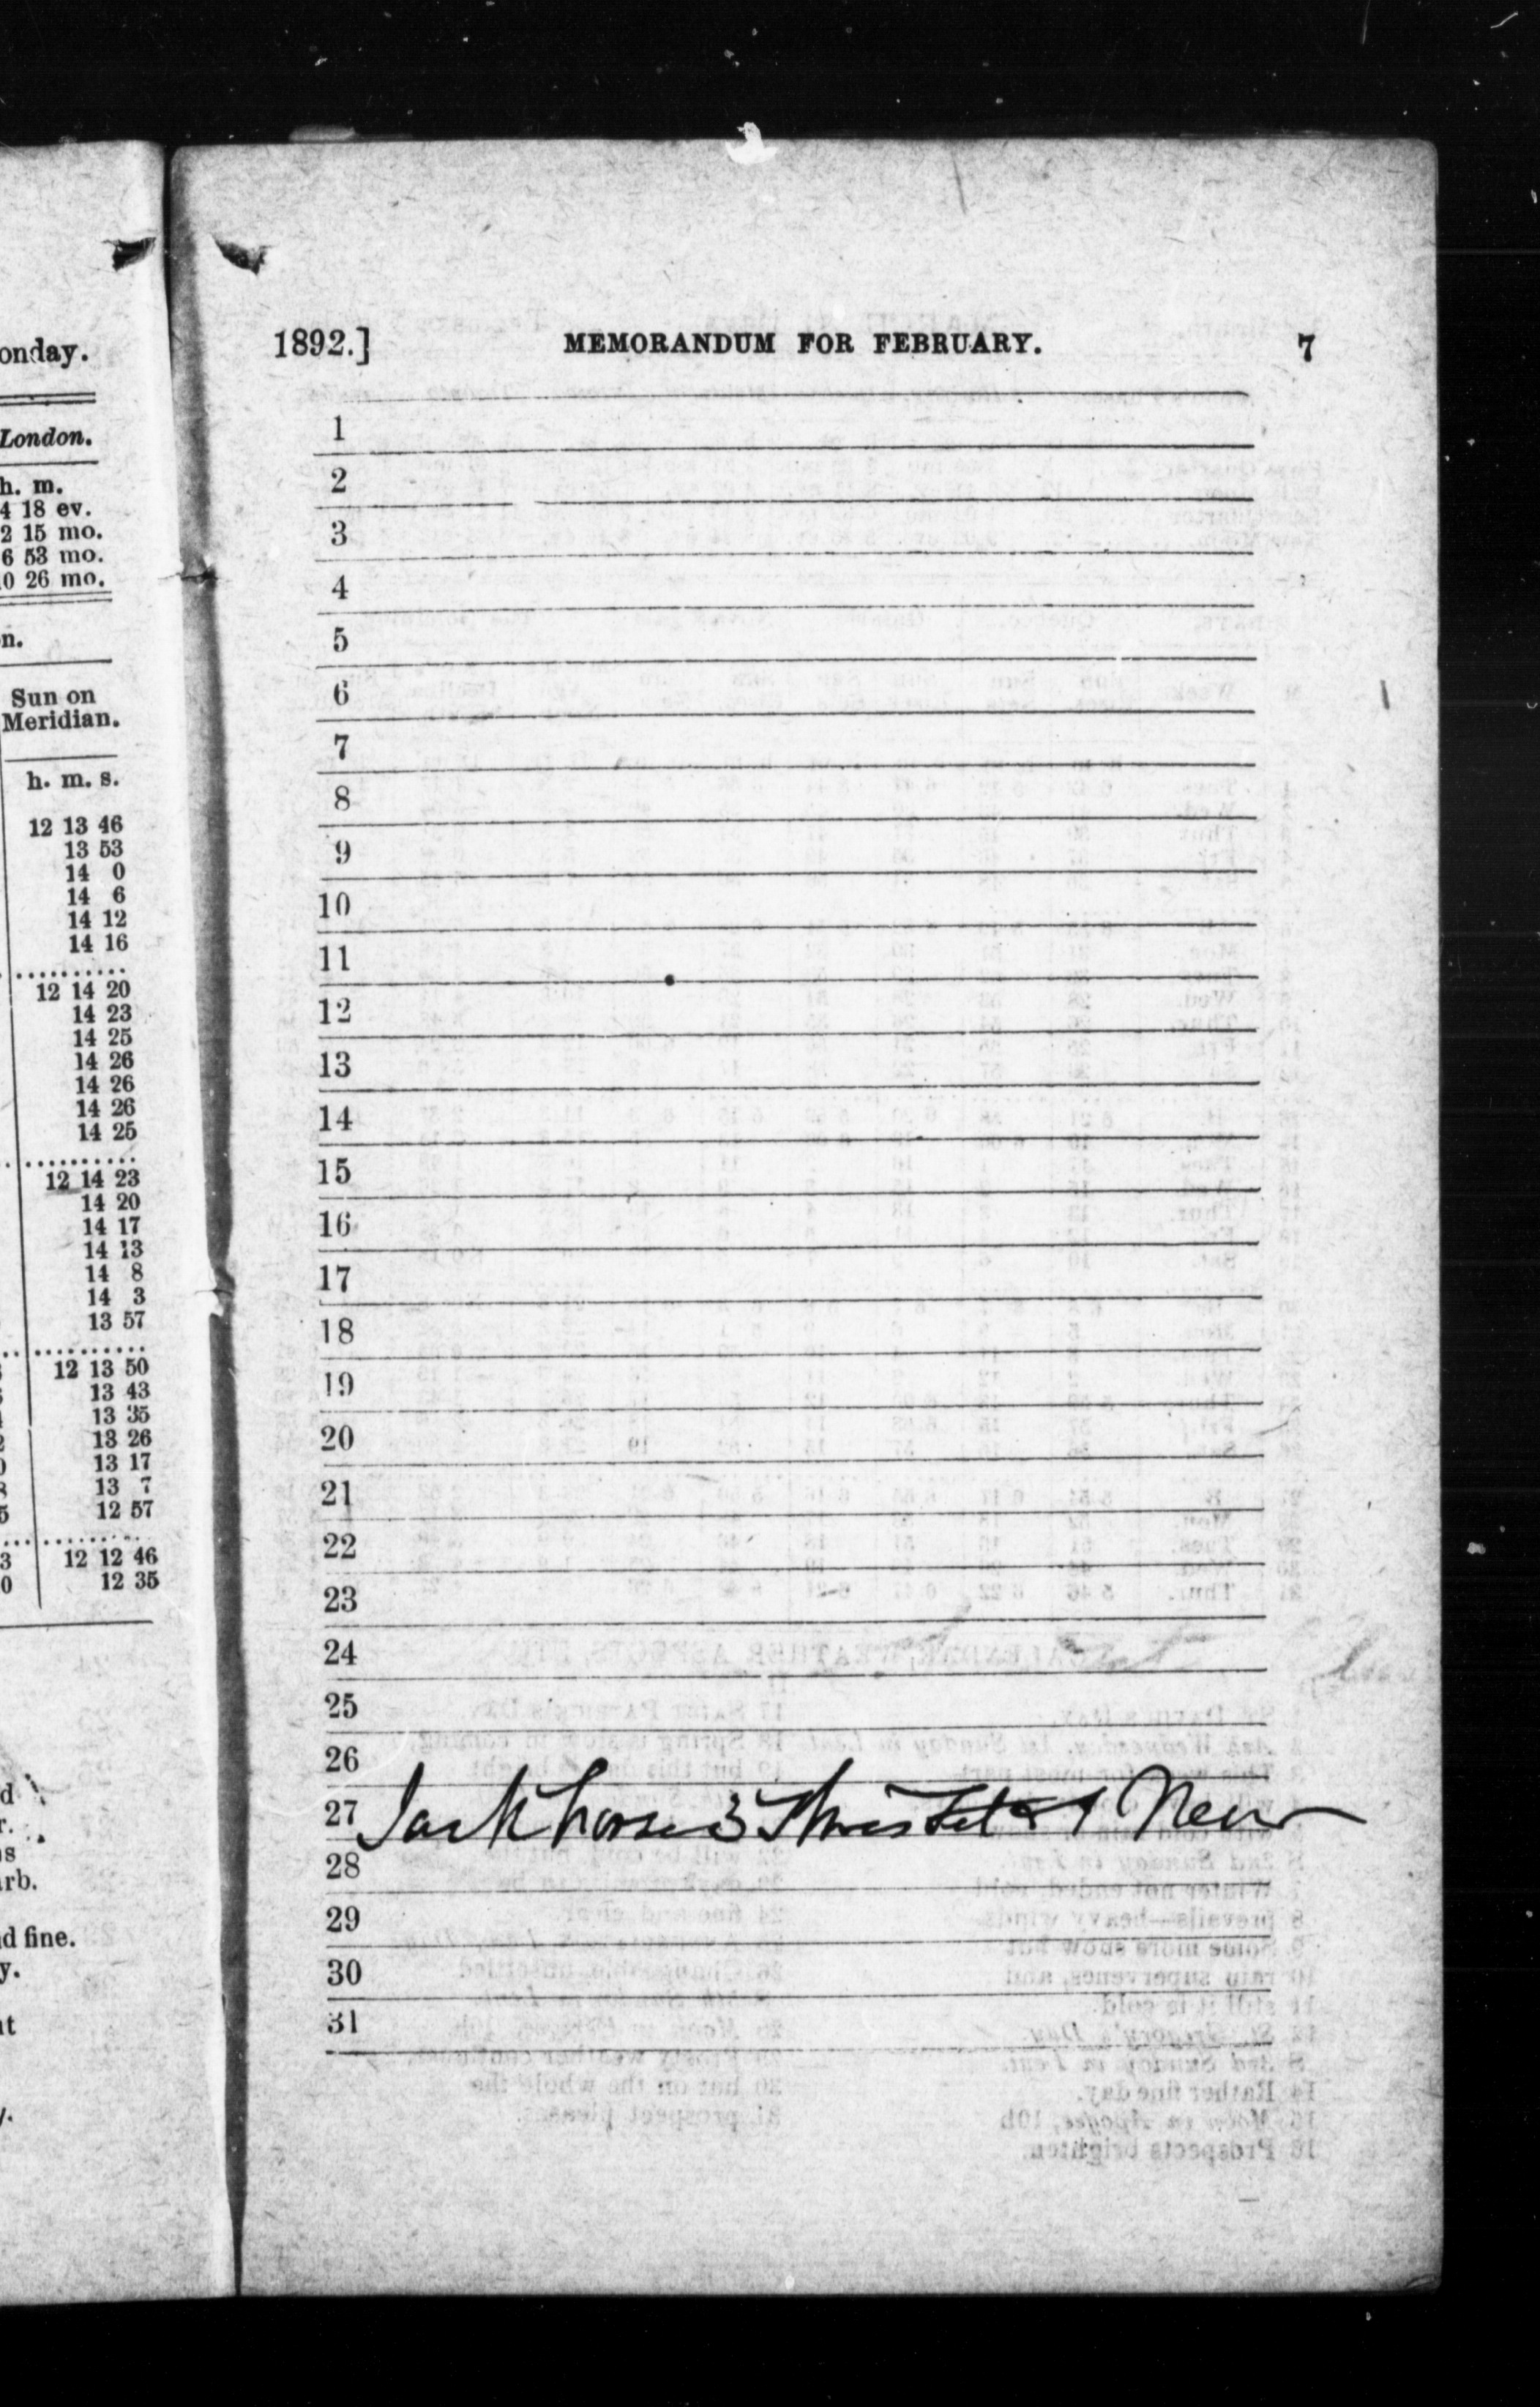 onday.
London.
h. m.
4 18 ev.
2 15 mo.
6 53 mo.
0 26 mo.
n.
Sun on
Meridian.
h. m. s.
12 13 46
13 53
14 0
14 6
14 12
14 16
12 14 20
14 23
14 25
14 26
14 26
14 26
14 25
12 14 23
14 20
14 17
14 13
14 8
14 3
13 57
12 13 50
13 43
13 35
13 26
13 17
13 7
12 57
12 12 46
12 35
d
r.
s
arb.
d fine.
y.
at
y.
1892.] MEMORANDUM FOR FEBRUARY. 7
1
2
3
4
5
6
7
8
9
10
11
12
13
14
15
16
17
18
19
20
21
22
23
24
25
26
27 Jack horse 3 New
28
29
30
31